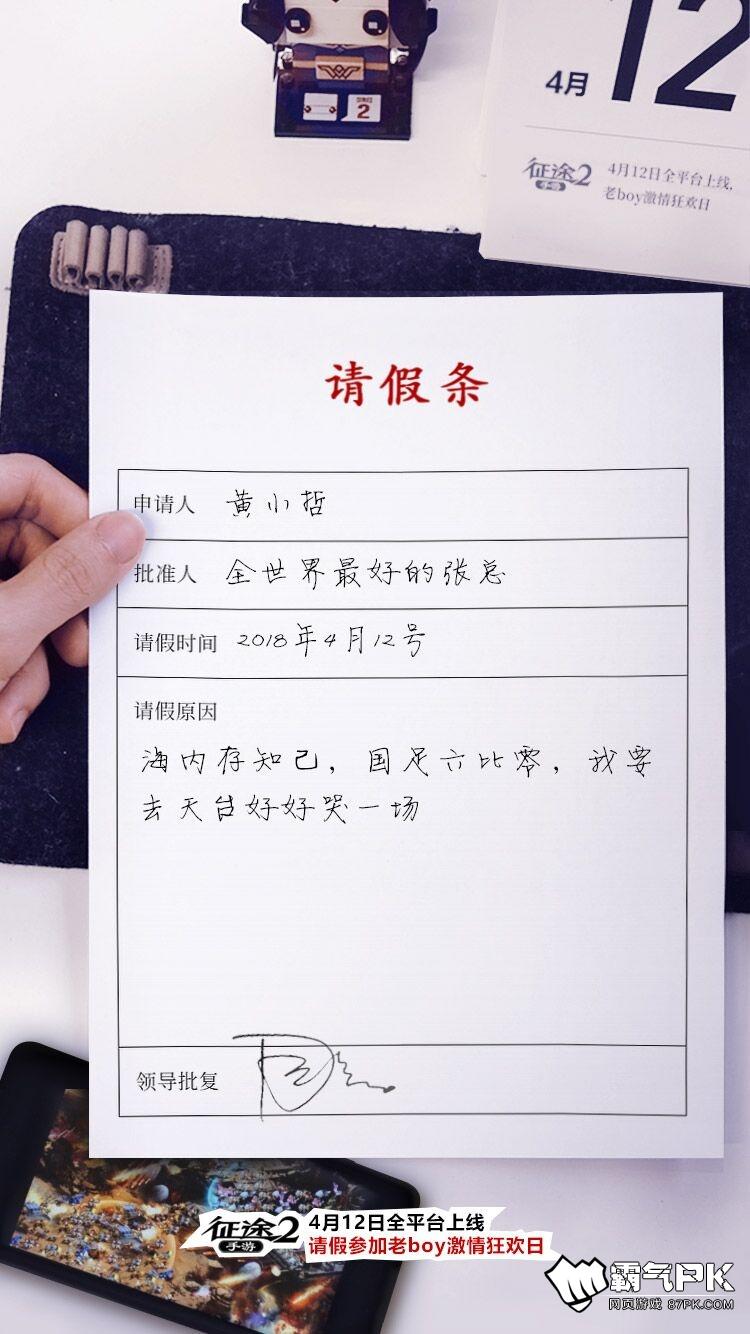 4月 12
2
征途2
手游
4月12日全平台上线,
老boy激情狂欢日
请假条
申请人 黄小哲
批准人 全世界最好的张总
请假时间 2018年4月12号
请假原因
海内存知己，国足六比零，我要
去天台好好哭一场
领导批复
征途2
手游
4月12日全平台上线
请假参加老boy激情狂欢日
霸气PK
网页游戏 87PK.COM